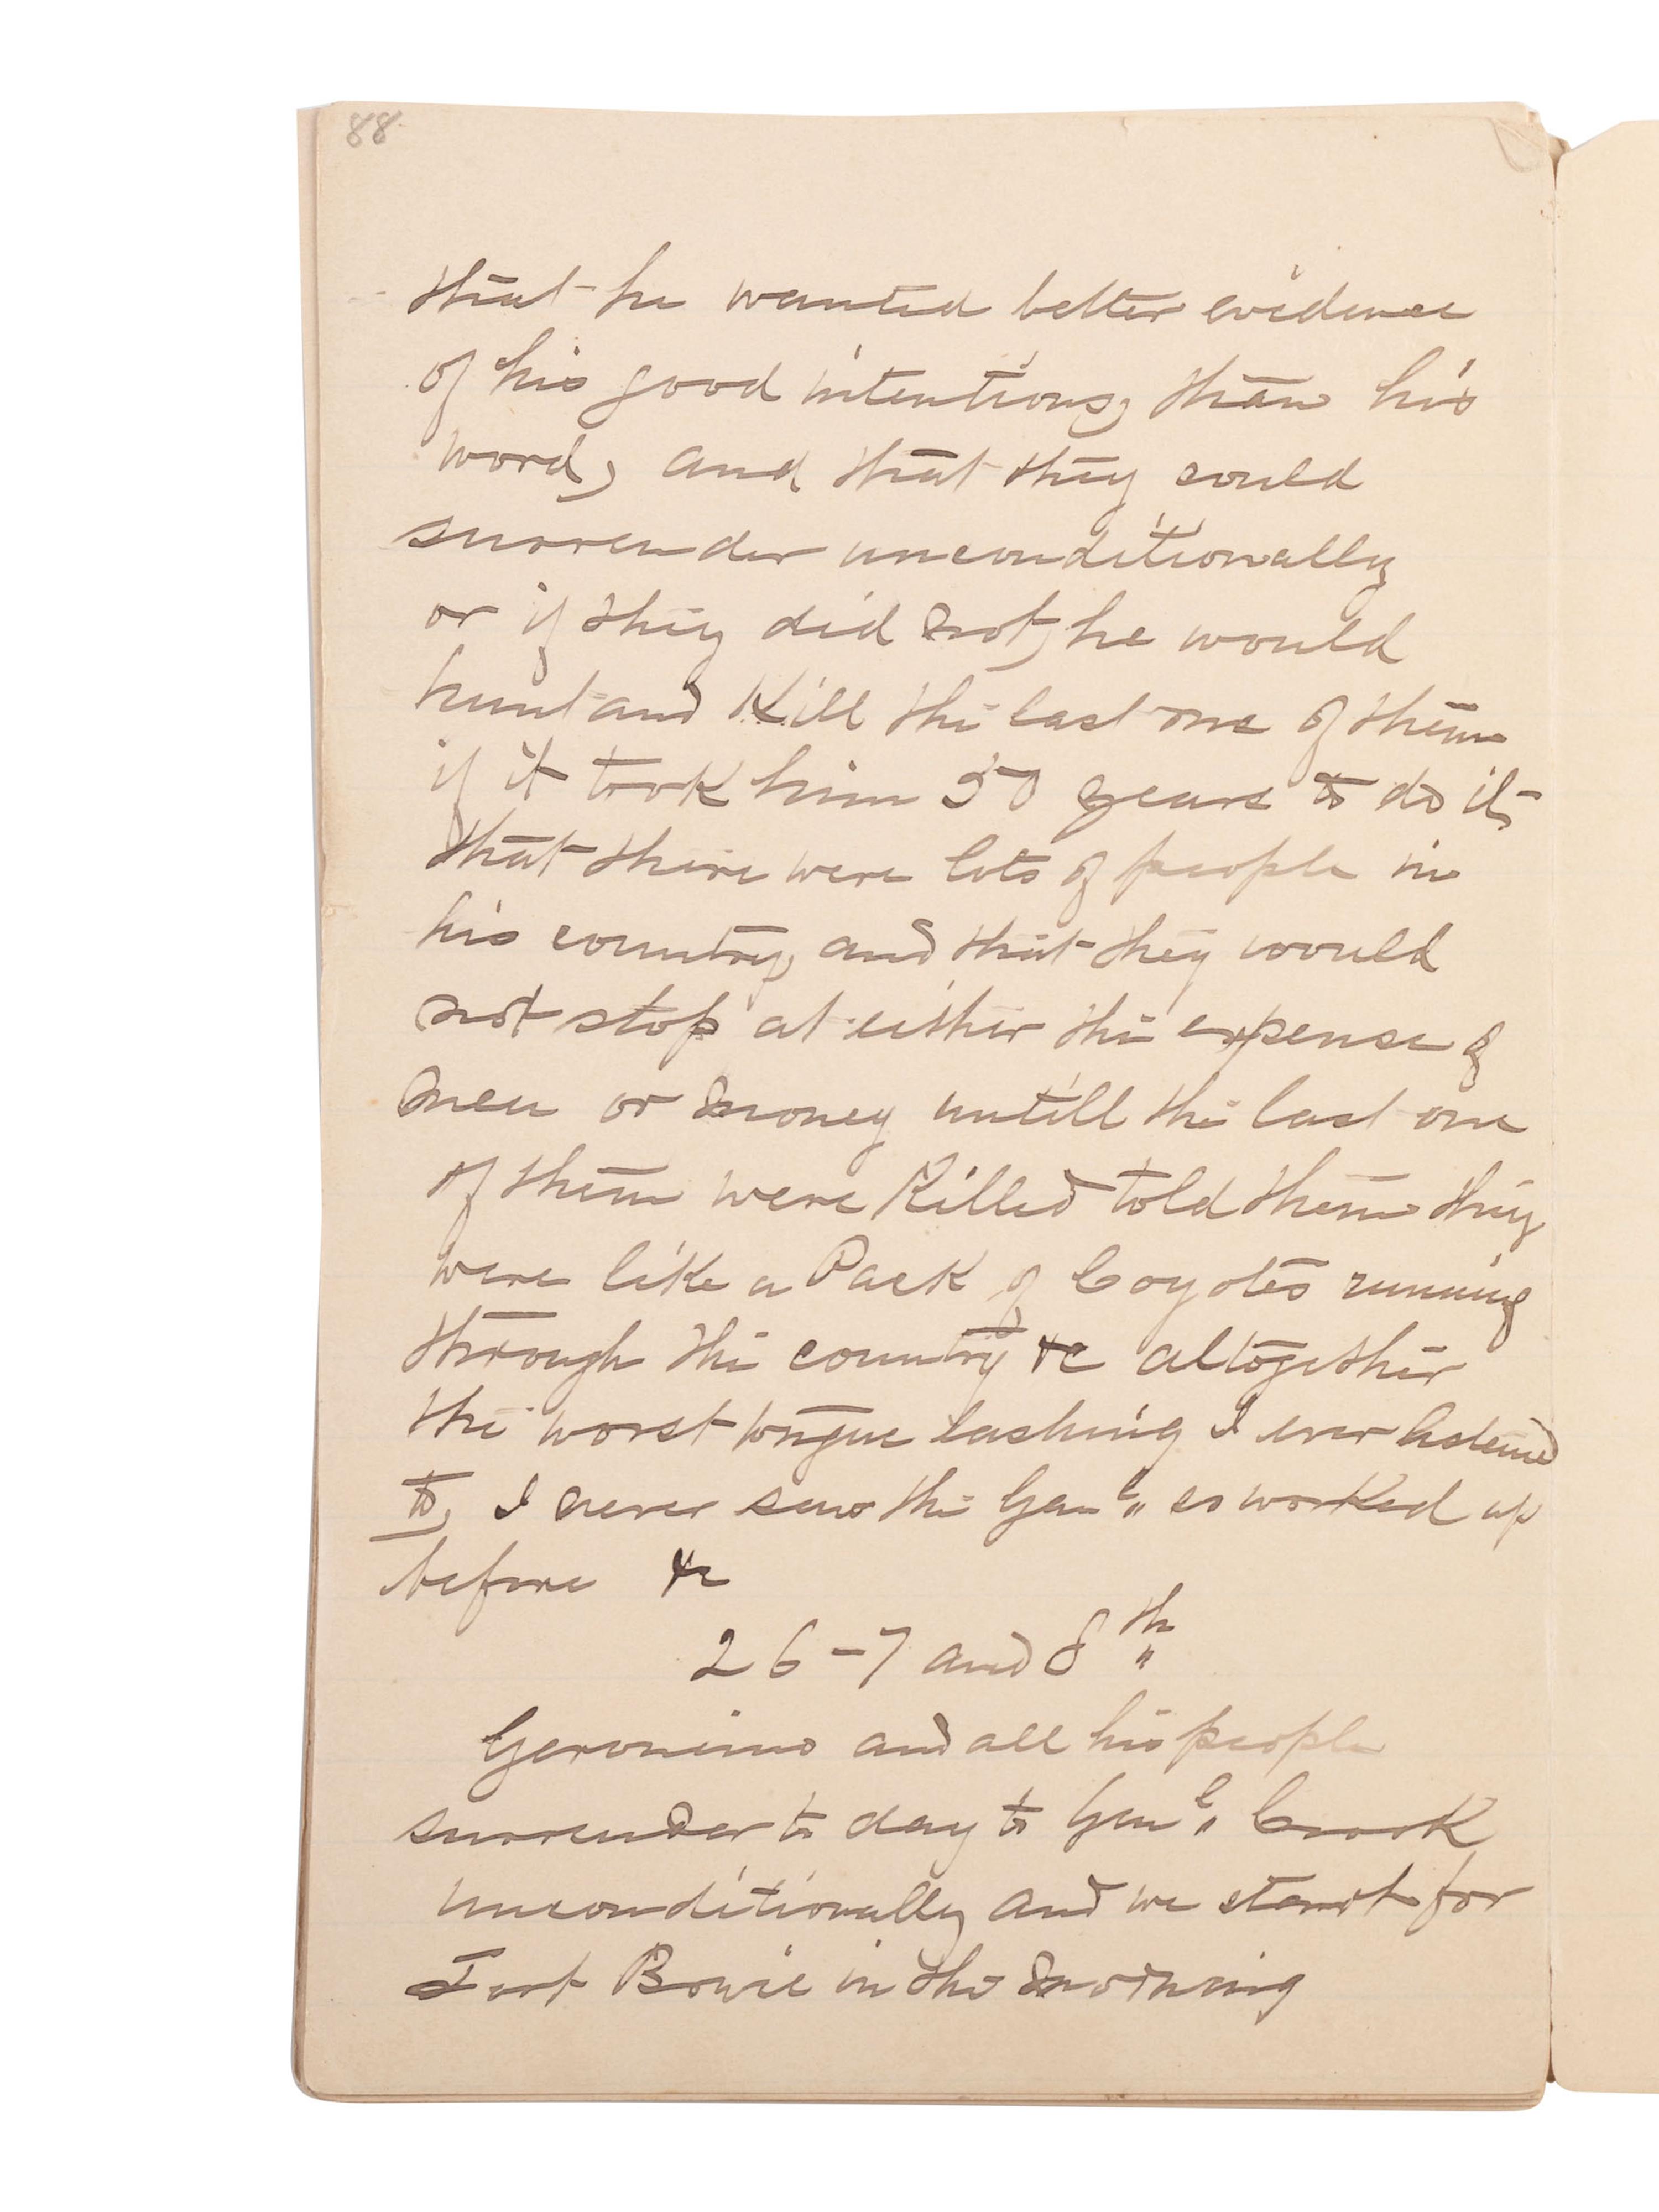 88
that he wanted better evidence
of his good intentions, than his
word, and that they could
surrender unconditionally
or if they did not, he would
hunt and Kill the last one of them
if it took him 50 years to do it,
that there were lots of people in
his country, and that they would
not stop at either the expense of
men or money untill the last one
of them were Killed told them they
were like a Pack of Coyotes running
through the country &c altogether
the worst tongue lashing I ever listened
to, I never saw the Genl" so worked up
before &c
26-7 and 8th"
Geronimo and all his people
surrender to day to Genl" Crook
unconditionally and we start for
Fort Bowie in the morning